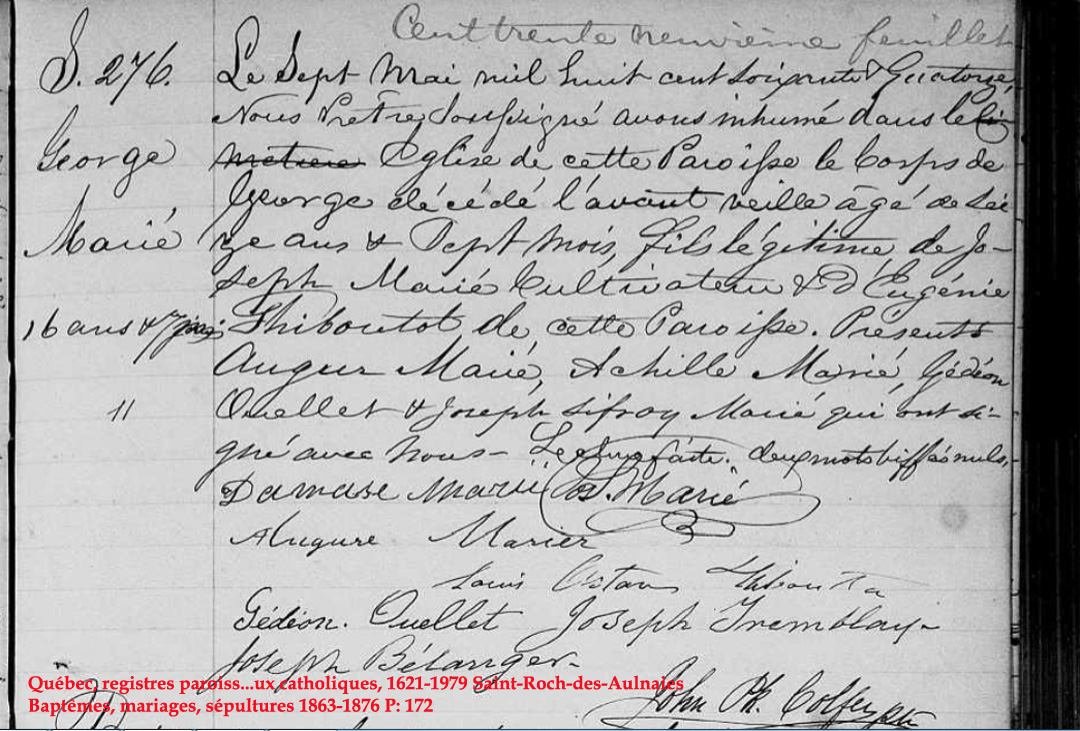 Cent trente neuvième feuillet
S. 276.
George
Marié
16 ans & 7
11
Le Sept Mai mil huit cent soixante & Quatorze,
Nous Prêtre Soussigné avons inhumé dans le Ci-
metiere Eglise de cette Paroisse le Corps de
George décédé l'avant veille âgé de Sei
ze ans & Sept mois, fils légitime de Jo-
seph Marié Cultivateur & d'Eugénie
Thiboutot de cette Paroisse. Présents
Augure Marié, Achille Marié, Gédéon
Ouellet & Joseph Sifroy Marié qui ont si-
gné avec nous - Lecture faite. deux mots biffés nuls.
Damase Marié J. S. Marié
Augure Marier
Louis Octave Thibouto
Gédéon. Ouellet Joseph Tremblay
Joseph Bélanger
John Ph. Colfer, ptre
Québec, registres paroiss...ux catholiques, 1621-1979 Saint-Roch-des-Aulnaies
Baptêmes, mariages, sépultures 1863-1876 P: 172